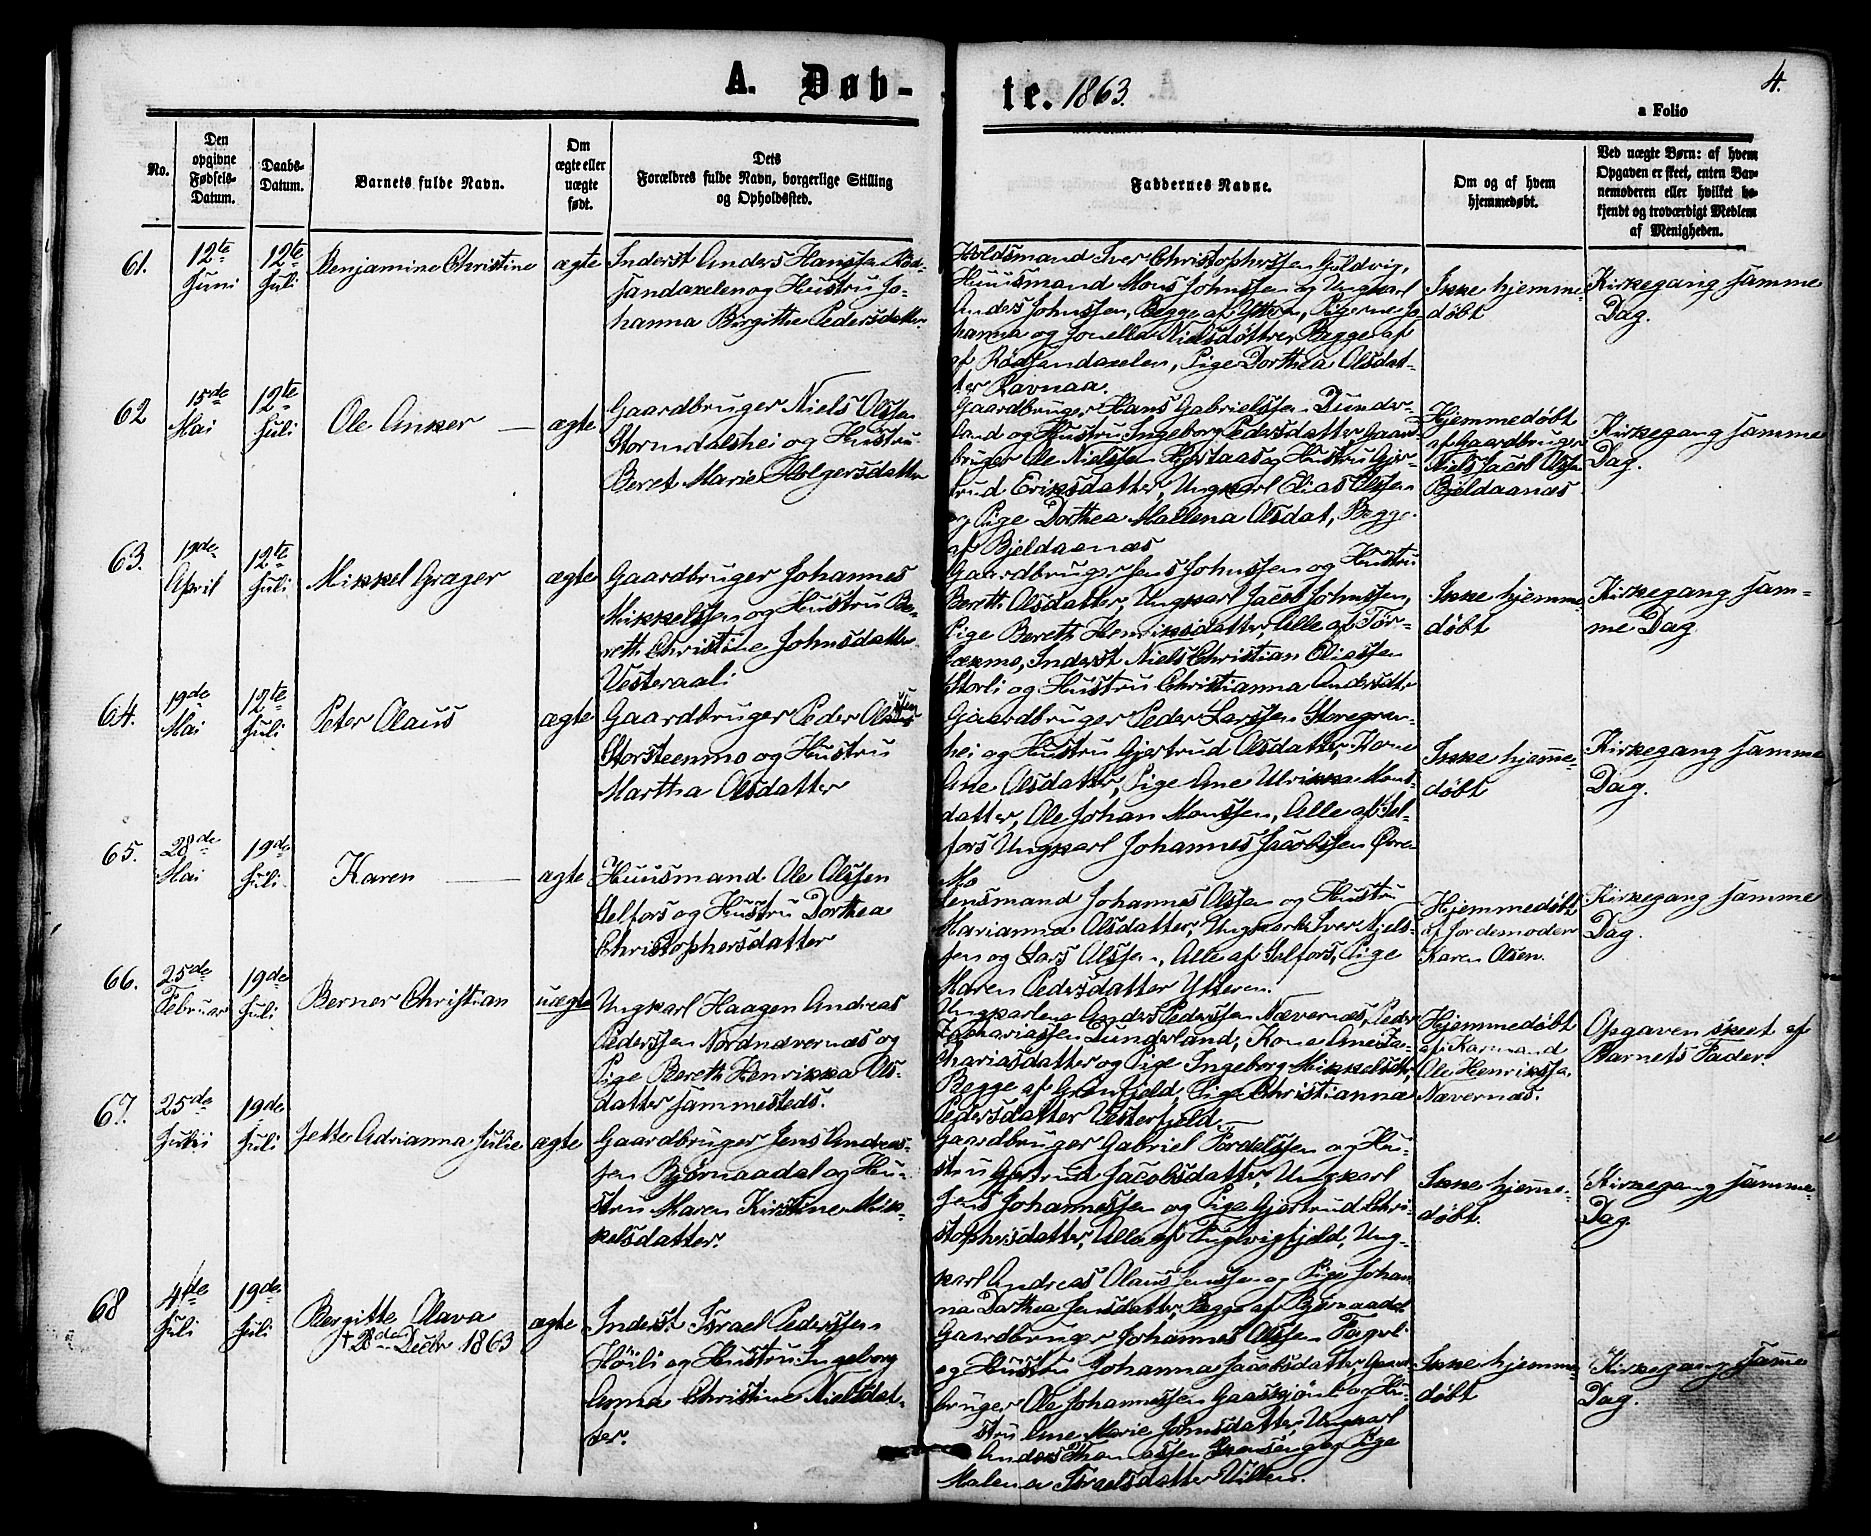 A. Døb-
te. 1863.
4.
a Folio
No.
Den
opgivne
Fødsels-
Datum.
Daabs-
Datum.
Barnets fulde Navn.
Om
ægte eller
uægte
født.
Dets
Forældres fulde Navn, borgerlige Stilling
og Opholdssted.
Faddernes Navne.
Om og af hvem
hjemmedøbt.
Ved uægte Børn: af hvem
Opgaven er skeet, enten Bar-
nemoderen eller hvilket be-
kjendt og troværdigt Medlem
af Menigheden.
61.
12te
Juni
12te
Juli
Benjamine Christine
ægte
Inderst Anders Hanssen Rød-
sandaxelen og Hustru Jo-
hanna Birgitha Pedersdatter
Holdsmand Iver Christophersen Guldvig,
Huusmand Mons Johnssen og Ungkarl
Anders Johnssen, Begge af Ytren, Pigerne Jo-
hanna og Jonella Nielsdøttre, Begge af
af Rødsandaxelen, Pige Dorthea Olsdat-
ter Ravnaa.
Ikke hjemme-
døbt
Kirkegang samme
Dag.
62
15de
Mai
12te
Juli
Ole Anker
ægte
Gaardbruger Niels Olssen
Stormdalshei og Hustru
Beret Marie Holgersdatter
Gaardbruger Hans Gabrielssen Dunder-
land og Hustru Ingeborg Pedersdatter, Gaard-
bruger Ole Nielssen og Hustru Gjer-
trud Eriksdatter, Ungkarl Elias Olssen
og Pige Dorthea Mallena Olsdat, Begge
af Bjeldaanæs
Hjemmedøbt
af Gaardbruger
Niels Jacob Olssen
Bjeldaanæs
Kirkegang samme
Dag.
63.
19de
April
12te
Juli
Mikkel Grøger
ægte
Gaardbruger Johannes
Mikkelssen og Hustru Be-
reth Christine Johnsdatter
Vesteraali
Gaardbruger Jens Johnssen og Hustru
Bereth Olsdatter, Ungkarl Jacob Johnssen,
Pige Bereth Henriksdatter, Alle af Tør-
bækmo, Inderst Niels Christian Eliassen
Storli og Hustru Christianna Andersdtr
Ikke hjemme
døbt
Kirkegang sam-
me Dag
64.
19de
Mai
12te
Juli
Peter Olaus
ægte
Gaardbruger Peder Olssen
Storsteenmo og Hustru
Martha Olsdatter
Gaardbruger Peder Larssen Storegran-
hei og Hustru Gjertrud Olsdatter, Kone
Ane Olsdatter, Pige Ane Ulrikka Mons-
datter, Ole Johan Monssen, Alle af Sel-
fors Ungkarl Johannes Jacobssen Øvre
Mo
Ikke hjemme-
døbt
Kirkegang samme
Dag.
65.
28de
Mai
19de
Juli
Karen
ægte
Huusmand Ole Olssen
Selfors og Hustru Dorthea
Christophersdatter
Lensmand Johannes Olssen og Hustru
Marianna Olsdatter, Ungkarl Iver Niels-
sen og Lars Olssen, Alle af Selfors, Pige
Maren Pedersdatter Ytteren.
Hjemmedøbt
af Jordemoder
Karen Olsen.
Kirkegang samme
Dag.
66.
25de
Februar
19de
Juli
Berner Christian
uægte
Ungkarl Haagen Andreas
Pederssen Nordnævernæs og
Pige Bereth Henrikka Ols-
datter sammesteds.
Ungkarlene Anders Pederssen Nævernæs, Peder
Zachariassen Dunderland, Kone Ane Za-
chariasdatter og Pige Ingeborg Mikkelsdtr,
Begge af Grønfjeld, Pige Christianna
Pedersdatter Vesterfjeld.
Hjemmedøbt
af Kaxmand
Ole Henrikssen
Nævernæs.
Opgaven skeet af
Barnets Fader.
67.
25de
Juni
19de
Juli
Jetter Adrianna Julie
ægte
Gaardbruger Jens Andreas-
sen Bjørnaadal og Hu-
stru Maren Kirstine Mik-
kelsdatter.
Gaardbruger Gabriel Tordelssen og Hu-
stru Gjertrud Jacobsdatter, Ungkarl
Jens Johannessen og Pige Gjertrud Chri-
stophersdatter, Alle af Fuglvigfjeld, Ung-
karl Andreas Olaus Jenssen og Pige Johan
na Dorthea Jensdatter, Begge af Bjørnaadal
Ikke hjemme-
døbt.
Kirkegang samme
Dag.
68
4de
Juli
19de
Juli
Bergitte Olava
† 28de Decbr 1863
ægte
Inderst Israel Pederssen
Høili og Hustru Ingeborg
Anna Christine Nielsdat-
ter.
Gaardbruger Johannes Olssen Fagerli
og Hustru Johanna Jacobsdatter, Gaard-
bruger Ole Johannessen og Hu-
stru Ane Marie Johnsdatter, Ungkarl
Anders Thomassen og Pige
Malena Israelsdatter
Ikke hjemme
døbt
Kirkegang samme
Dag.